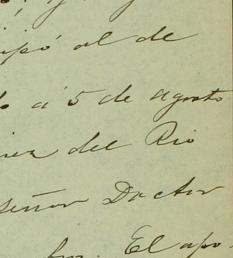 ipó al de
a 5 de agosto
del Rio
señor Doctor
El apo-